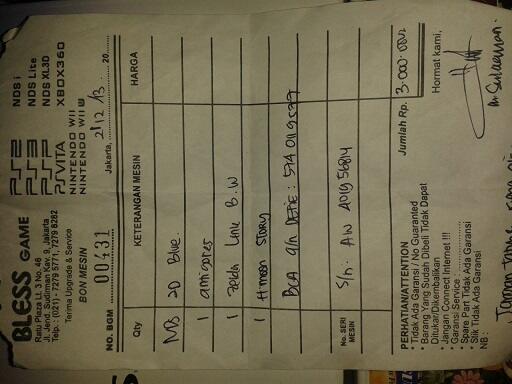 BLESS GAME
Ratu Plaza Lt. 3 No. 46
Jl. Jend. Sudirman Kav. 9, Jakarta
Telp. : (021) - 7279 5771, 7279 8282
Terima Upgrade & Service
BON MESIN
PS2
PS3
PSP
PS VITA
NINTENDO WII
NINTENDO WII U
NDS i
NDS Lite
NDS XL3D
XBOX360
NO. BGM 00431
Jakarta, 2/12 13 20
Qty KETERANGAN MESIN HARGA
NDS 3D Blue
1 antigores
1 Zelda Link B.W
1 H moon story
BCA a/n DEFIE : 574 011 9577
NO. SERI MESIN S/n : AW 401956814
Jumlah Rp. 3.000.000
PERHATIAN/ATTENTION
* Tidak Ada Garansi / No Guaranted
* Barang Yang Sudah Dibeli Tidak Dapat Ditukar/Dikembalikan
* Jangan Connect Internet !!!
* Garansi Service :
* Spare Part Tidak Ada Garansi
* Stik Tidak Ada Garansi
NB :
Hormat kami,